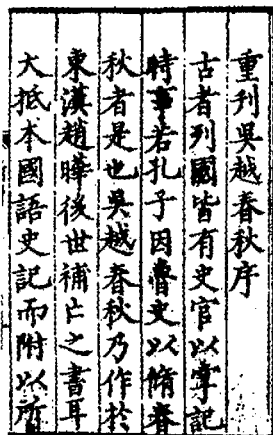 重刊吳越春秋序
古者列國皆有史官以掌記
時事若孔子因魯史以脩春
秋者是也吳越春秋乃作於
東漢趙曄後世補亡之書耳
大抵本國語史記而附以所